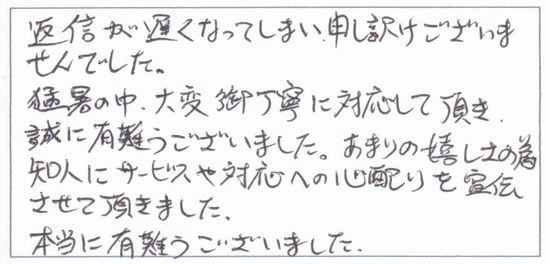 返信が遅くなってしまい、申し訳けございま
せんでした。
猛暑の中、大変御丁寧に対応して頂き、
誠に有難うございました。あまりの嬉しさの為
知人にサービスや対応への心配りを宣伝
させて頂きました。
本当に有難うございました。